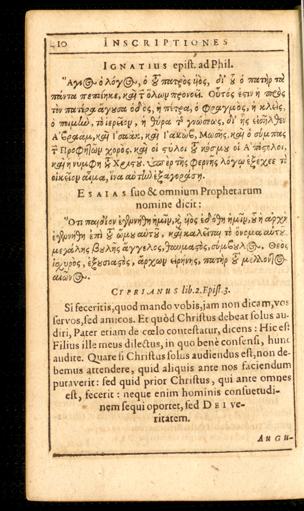 10 INSCRIPTIONES
IGNATIUS epist. ad Phil.
Ἅγιος ὁ λόγος, ὁ τοῦ πατρὸς υἱὸς, δι' οὗ ὁ πατὴρ τὰ
πάντα πεποίηκε, καὶ τῶν ὅλων προνοεῖ. Οὗτος ἐστιν ἡ πρὸς
τὸν πατέρα ἄγουσα ὁδὸς, ἡ πέτρα, ὁ φραγμὸς, ἡ κλεὶς,
ὁ ποιμὴν, τὸ ἱερεῖον, ἡ θύρα τῆς γνώσεως, δι' ἧς εἰσῆλθεν
Ἀβραὰμ, καὶ Ἰσαὰκ, καὶ Ἰακὼβ, Μωσῆς, καὶ ὁ σύμπας
τῶν Προφητῶν χορὸς, καὶ οἱ στύλοι τοῦ κόσμου οἱ Ἀπόστολοι,
καὶ ἡ νύμφη τοῦ Χριστοῦ, ὑπὲρ τῆς φερνῆς λόγῳ ἐξέχεε τὸ
οἰκεῖον αἷμα, ἵνα αὐτὴν ἐξαγοράσῃ.
ESAIAS suo & omnium Prophetarum
nomine dicit:
Ὅτι παιδίον ἐγεννήθη ἡμῖν, καὶ υἱὸς ἐδόθη ἡμῖν, οὗ ἡ ἀρχὴ
ἐγεννήθη ἐπὶ τοῦ ὤμου αὐτοῦ, καὶ καλεῖται τὸ ὄνομα αὐτοῦ
μεγάλης βουλῆς ἄγγελος, θαυμαστὸς, σύμβουλος, Θεὸς
ἰσχυρὸς, ἐξουσιαστὸς, ἄρχων εἰρήνης, πατὴρ τοῦ μέλλοντος
αἰῶνος.
CYPRIANUS lib. 2. Epist. 3.
Si feceritis, quod mando vobis, jam non dicam, vos
servos, sed amicos. Et quòd Christus debeat solus au-
diri, Pater etiam de cœlo contestatur, dicens: Hic est
Filius ille meus dilectus, in quo benè consensi, hunc
audite. Quare si Christus solus audiendus est, non de-
bemus attendere, quid aliquis ante nos faciendum
putaverit: sed quid prior Christus, qui ante omnes
est, fecerit: neque enim hominis consuetudi-
nem sequi oportet, sed DEI ve-
ritatem.
AUGU-